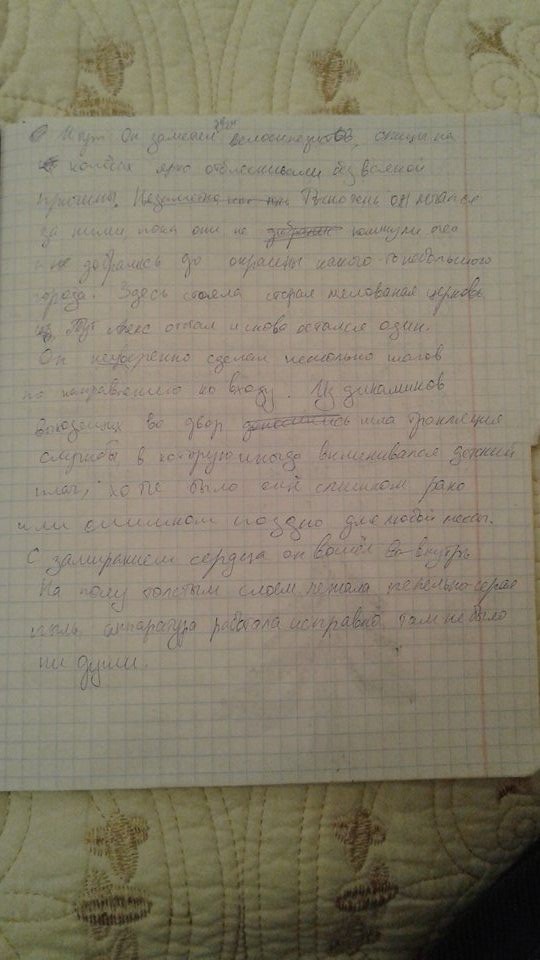 И тут он заметил двух велосипедистов, спицы на
колёсах ярко отблескивали без всякой
причины. Незаметно он
за ними пока они не
не добрались до окраины какого-то небольшого
города. Здесь стояла старая церковь
Тут Алекс отстал и снова остался один.
Он неуверенно сделал несколько шагов
по направлению ко входу. Из динамиков
во двор доносились шла трансляция
службы в которую иногда вмешивался детский
плач, хотя было ещё слишком рано
или слишком поздно для любой мессы.
С замиранием сердца он вошёл во внутрь
На полу толстым слоем лежала пепельно-серая
пыль, аппаратура работала исправно, там не было
ни души.